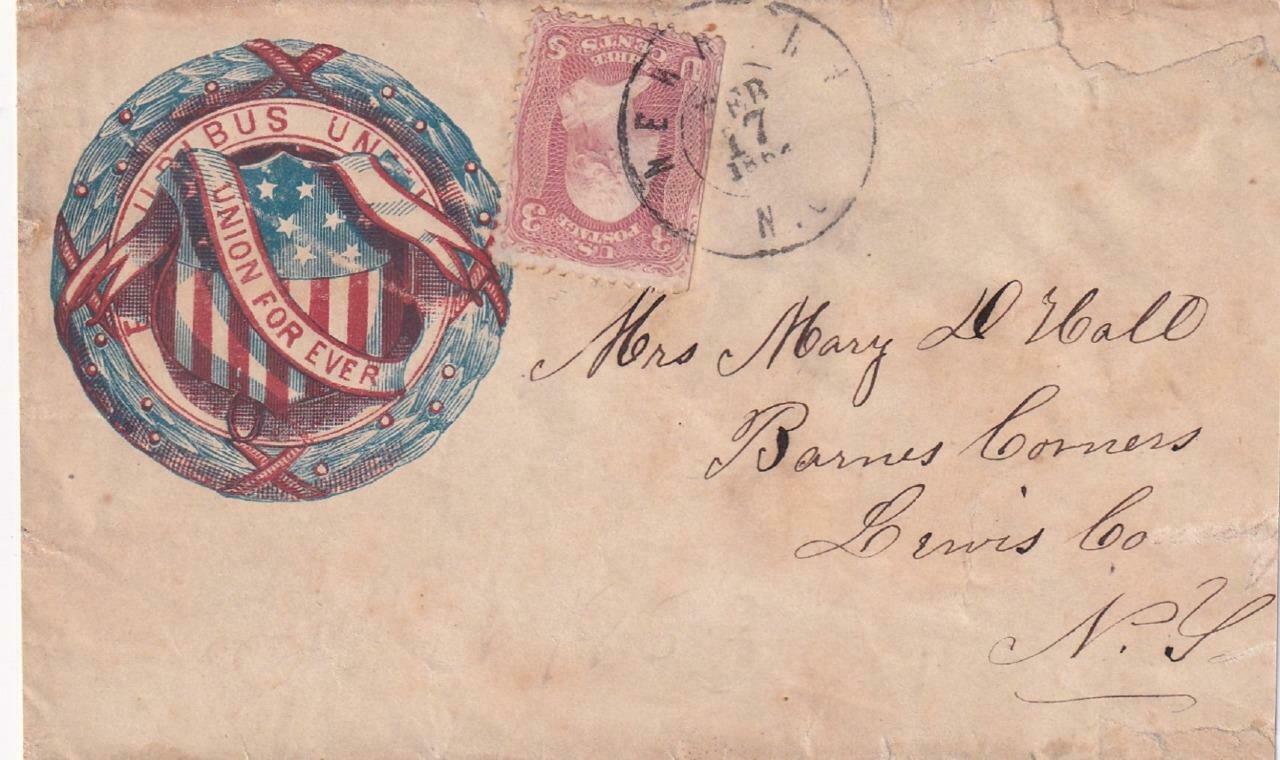 E PLURIBUS UNUM
UNION FOR EVER
U.S. POSTAGE
3 3
THREE
CENTS
N.C
FEB
17
Mrs Mary D Hall
Barnes Corners
Lewis Co
N.Y.